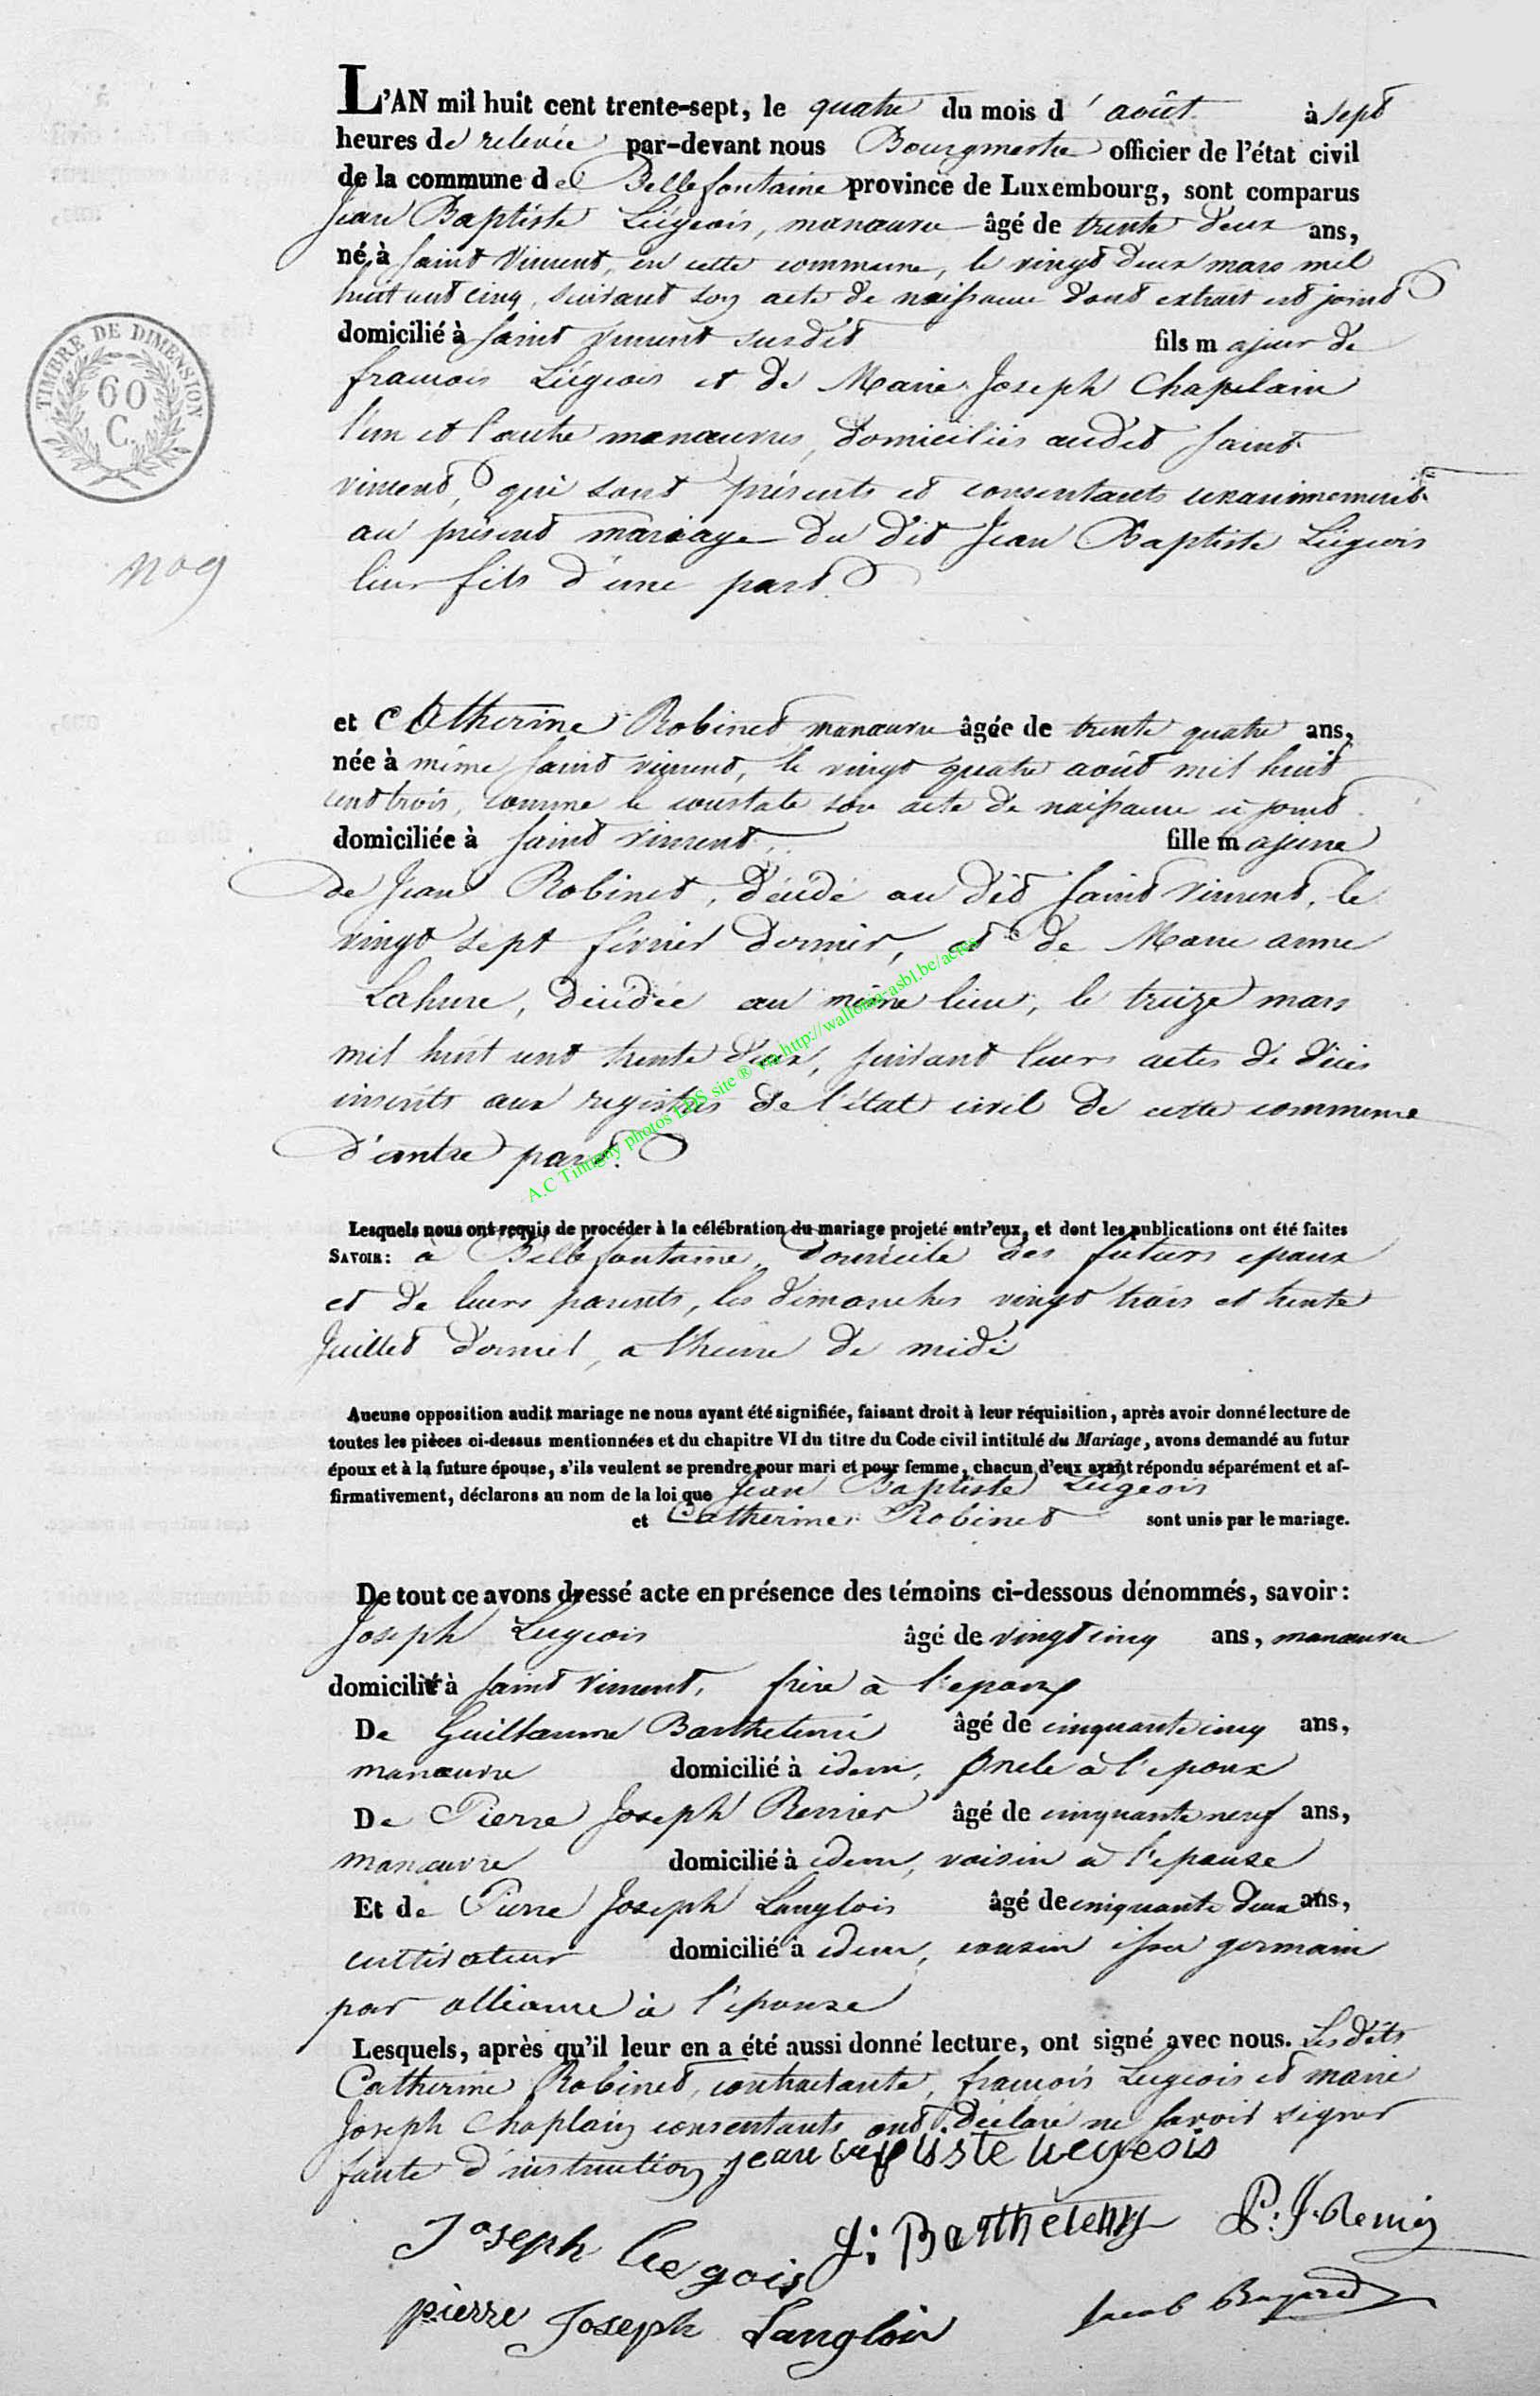 L'AN mil huit cent trente-sept, le quatre du mois d'août à sept
heures de relevée par-devant nous Bourgmestre officier de l'état civil
de la commune de Bellefontaine province de Luxembourg, sont comparus
Jean Baptiste Liégeois, manœuvre âgé de trente deux ans,
né à Saint Vincent, en cette commune, le vingt deux mars mil
huit cent cinq, suivant son acte de naissance dont extrait est joint
domicilié à Saint Vincent susdit fils majeur de
francois Liégeois et de Marie Joseph Chaplain
l'un et l'autre manœuvres, domiciliés audit Saint
vincent, qui sont présents et consentants unanimement
au présent mariage du dit Jean Baptiste Liégeois
leur fils d'une part.
TIMBRE DE DIMENSION
60
C.
No 9
et Catherine Robinet manœuvre âgée de trente quatre ans,
née à même Saint vincent, le vingt quatre août mil huit
cent trois, comme le constate son acte de naissance ci joint
domiciliée à Saint Vincent fille majeure
de Jean Robinet, décédé au dit Saint Vincent, le
vingt sept février dernier, et de Marie anne
Lahure, décédée au même lieu, le treize mars
mil huit cent trente deux, suivant leurs actes de décès
inscrits aux registres de l'état civil de cette commune
d'autre part.
A.C Tintigny photos LDS site ® via http://wallonia-asbl.be/actes
Lesquels nous ont requis de procéder à la célébration du mariage projeté entr'eux, et dont les publications ont été faites
SAVOIR: à Bellefontaine, domicile des futurs epoux
et de leurs parents, les dimanches vingt trois et trente
Juillet dernier, a l'heure de midi
Aucune opposition audit mariage ne nous ayant été signifiée, faisant droit à leur réquisition, après avoir donné lecture de
toutes les pièces ci-dessus mentionnées et du chapitre VI du titre du Code civil intitulé du Mariage, avons demandé au futur
époux et à la future épouse, s'ils veulent se prendre pour mari et pour femme, chacun d'eux ayant répondu séparément et af-
firmativement, déclarons au nom de la loi que Jean Baptiste Liégeois
et Catherine Robinet sont unis par le mariage.
De tout ce avons dressé acte en présence des témoins ci-dessous dénommés, savoir:
Joseph Liégeois âgé de vingt cinq ans, manœuvre
domicilié à Saint Vincent, frère à l'epoux
De Guillaume Barthelemi âgé de cinquante cinq ans,
manœuvre domicilié à idem, oncle à l'epoux
De Pierre Joseph Remier âgé de cinquante neuf ans,
manœuvre domicilié à idem, voisin a l'epouse
Et de Pierre Joseph Langlois âgé de cinquante deux ans,
cultivateur domicilié à idem, cousin issu germain
par alliance à l'epouse
Lesquels, après qu'il leur en a été aussi donné lecture, ont signé avec nous. Les dits
Catherine Robinet, contractante, francois Liégeois et marie
Joseph Chaplain consentants ont déclaré ne savoir signer
faute d'instruction jean baptiste liegeois
Joseph liegois g: Barthélemy P: J. Remi
pierre Joseph Langlois Jacob